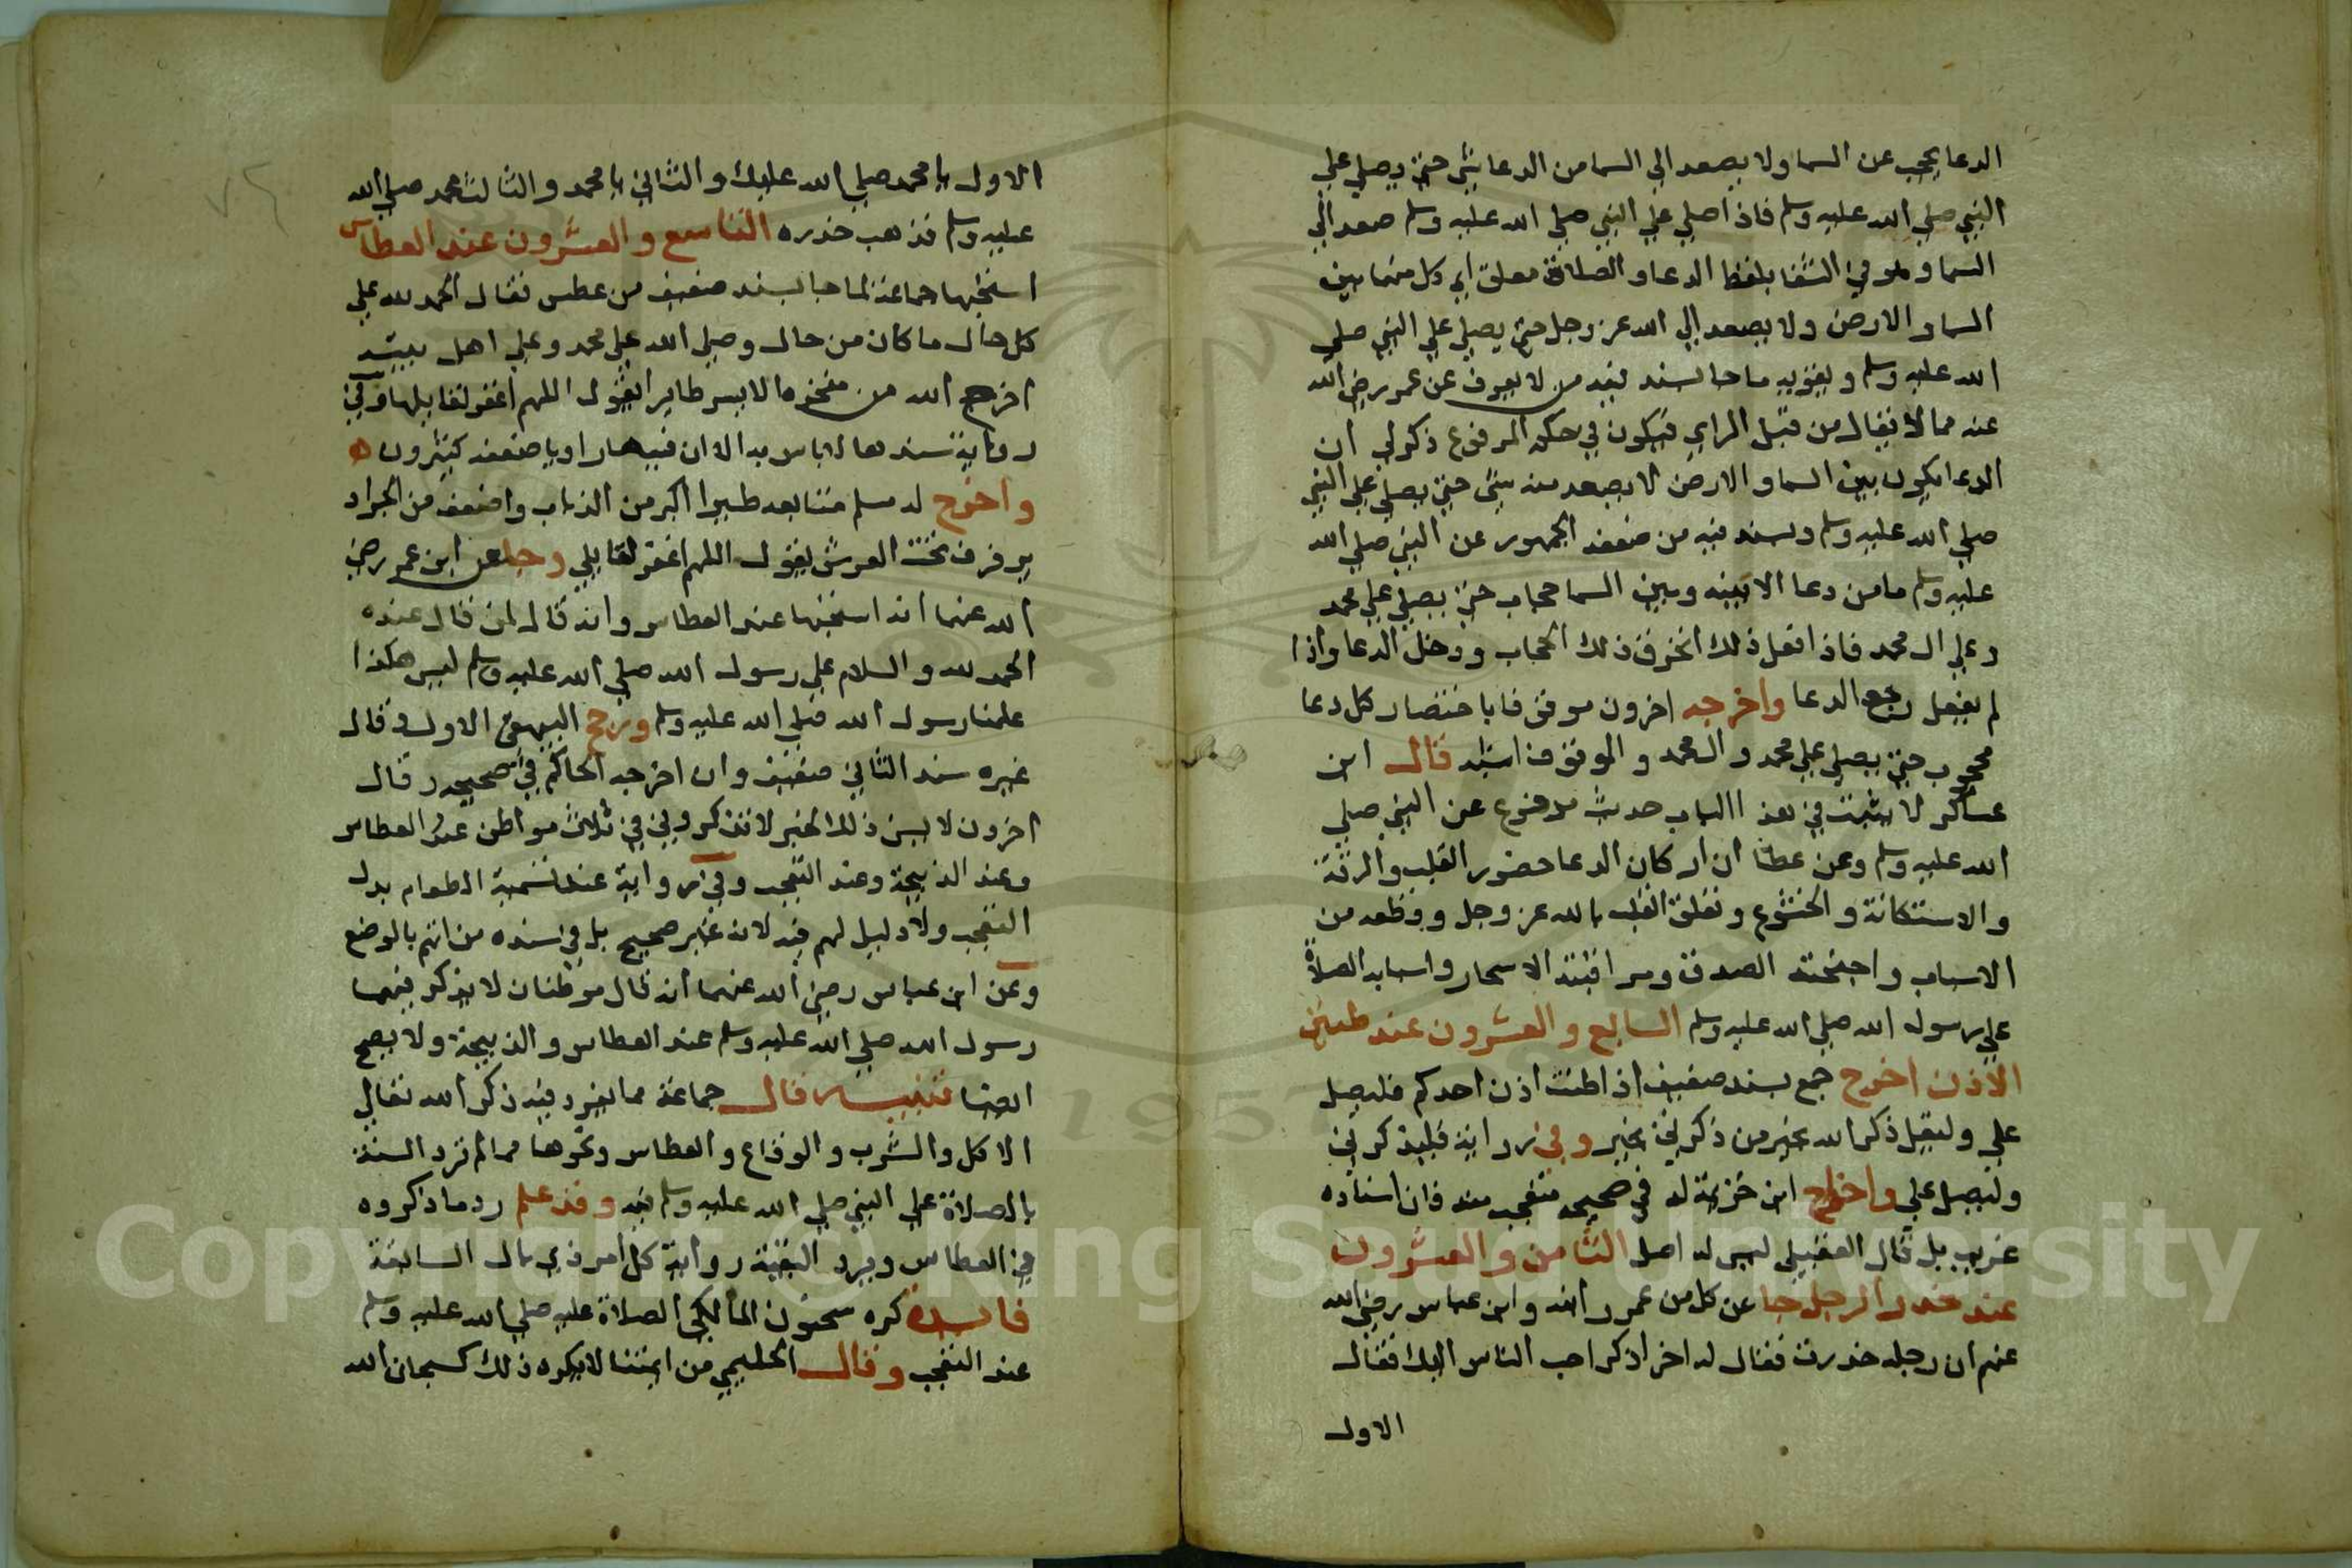 الدعا يحجب عن السما ولا يصعد الي السما من الدعا شي حتي يصلي علي
النبي صلي الله عليه وسلم فاذا صلي علي النبي صلي الله عليه وسلم صعد الي
السما وهو في الشفا بلفظ الدعا والصلاة معلق اي كل منهما بين
السما والارض ولا يصعد الي الله عز وجل حتي يصلي علي النبي صلي
الله عليه وسلم ويقويه ما جا بسند فيه من لا يعرف عن عمر رضي الله
عنه مما لا يقال من قبل الراي فيكون في حكم المرفوع ذكر لي ان
الدعا يكون بين السما والارض لا يصعد منه شي حتي يصلي علي النبي
صلي الله عليه وسلم وبسند فيه من ضعفه الجمهور عن النبي صلي الله
عليه وسلم ما من دعا الا بينه وبين السما حجاب حتي يصلي علي محمد
وعلي ال محمد فاذا فعل ذلك انخرق ذلك الحجاب ودخل الدعا واذا
لم يفعل رجع الدعا واخرجه اخرون موقوفا باختصار كل دعا
محجوب حتي يصلي علي محمد وال محمد والموقوف اشبه قال ابن
عساكر لا يثبت في هذا الباب حديث مرفوع عن النبي صلي
الله عليه وسلم وعن عطا ان اركان الدعا حضور القلب والرقة
والاستكانة والخشوع وتعلق القلب بالله عز وجل وقطعه من
الاسباب واجنحته الصدق ومواقيته الاسحار واسبابه الصلاة
علي رسول الله صلي الله عليه وسلم السابع والعشرون عند طنين
الاذن اخرج جمع بسند ضعيف اذا طنت اذن احدكم فليصل
علي وليقل ذكر الله بخير من ذكرني بخير وفي رواية فليذكرني
وليصل علي واخراج ابن خزيمة له في صحيحه متعجب منه فان اسناده
غريب بل قال العقيلي ليس له اصل الثامن والعشرون
عند خدر الرجل جا عن كل من عمر وابنه وابن عباس رضي الله
عنهم ان رجله خدرت فقال له اخر اذكر احب الناس اليك فقال
الاول
الاول يا محمد صلي الله عليك والثاني يا محمد والثالث محمد صلي الله
عليه وسلم فذهب خدره التاسع والعشرون عند العطاس
استحبها جماعة لما جا بسند ضعيف من عطس فقال الحمد لله علي
كل حال ما كان من حال وصلي الله علي محمد وعلي اهل بيته
اخرج الله من منخره الايسر طايرا يقول اللهم اغفر لقايلها وفي
رواية سندها لا باس به الا ان فيه راويا ضعفه كثيرون
واخرج له مسلم متابعه طيرا اكبر من الذباب واضعف من الجراد
يرفرف تحت العرش يقول اللهم اغفر لقايلي وجا عن ابن عمر رضي
الله عنهما انه استحبها عند العطاس وانه قال لمن قال عنده
الحمد لله والسلام علي رسول الله صلي الله عليه وسلم ليس هكذا
علمنا رسول الله صلي الله عليه وسلم ورجح البيهقي الاول وقال
غيره سند الثاني ضعيف وان اخرجه الحاكم في صحيحه وقال
اخرون لا يسن ذلك لخبر لا تذكروني في ثلاث مواطن عند العطاس
وعند الذبيحة وعند التعجب وفي رواية عند تسمية الطعام بدل
التعجب ولا دليل لهم فيه لانه غير صحيح بل في سنده من اتهم بالوضع
وعن ابن عباس رضي الله عنهما انه قال موطنان لا يذكر فيهما
رسول الله صلي الله عليه وسلم عند العطاس والذبيحة ولا يصح
ايضا تنبيه قال جماعة مما يفرد فيه ذكر الله تعالي
الاكل والشرب والوقاع والعطاس ونحوها مما لم ترد السنة
بالصلاة علي النبي صلي الله عليه وسلم فيه وقد علم رد ما ذكروه
في العطاس ويرد البقية رواية كل امر ذي بال السابقة
فايدة كره سحنون المالكي الصلاة عليه صلي الله عليه وسلم
عند التعجب وقال الحليمي من ايمتنا لا يكره ذلك كسبحان الله